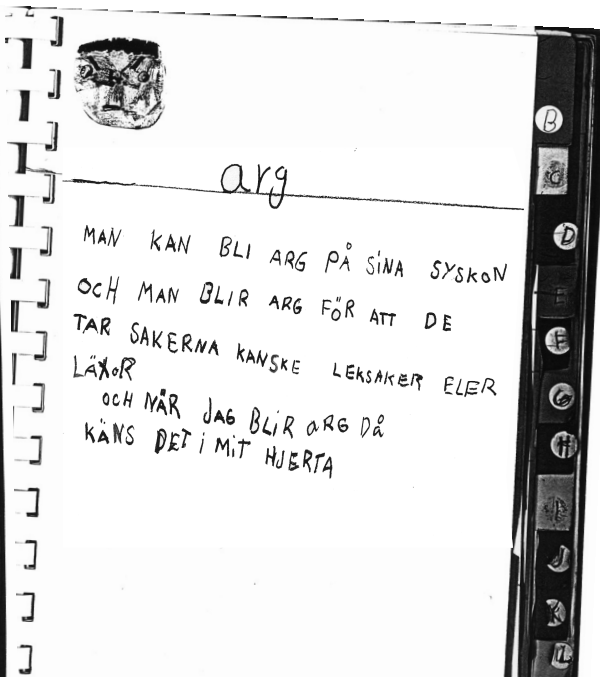 arg
MAN KAN BLI ARG PÅ SINA SYSKON
OCH MAN BLIR ARG FÖR ATT DE
TAR SAKERNA KANSKE LEKSAKER ELER
LÄXOR
OCH NÄR JAG BLIR ARG DÅ
KÄNS DET I MIT HJERTA
B
C
D
E
F
G
H
J
K
L